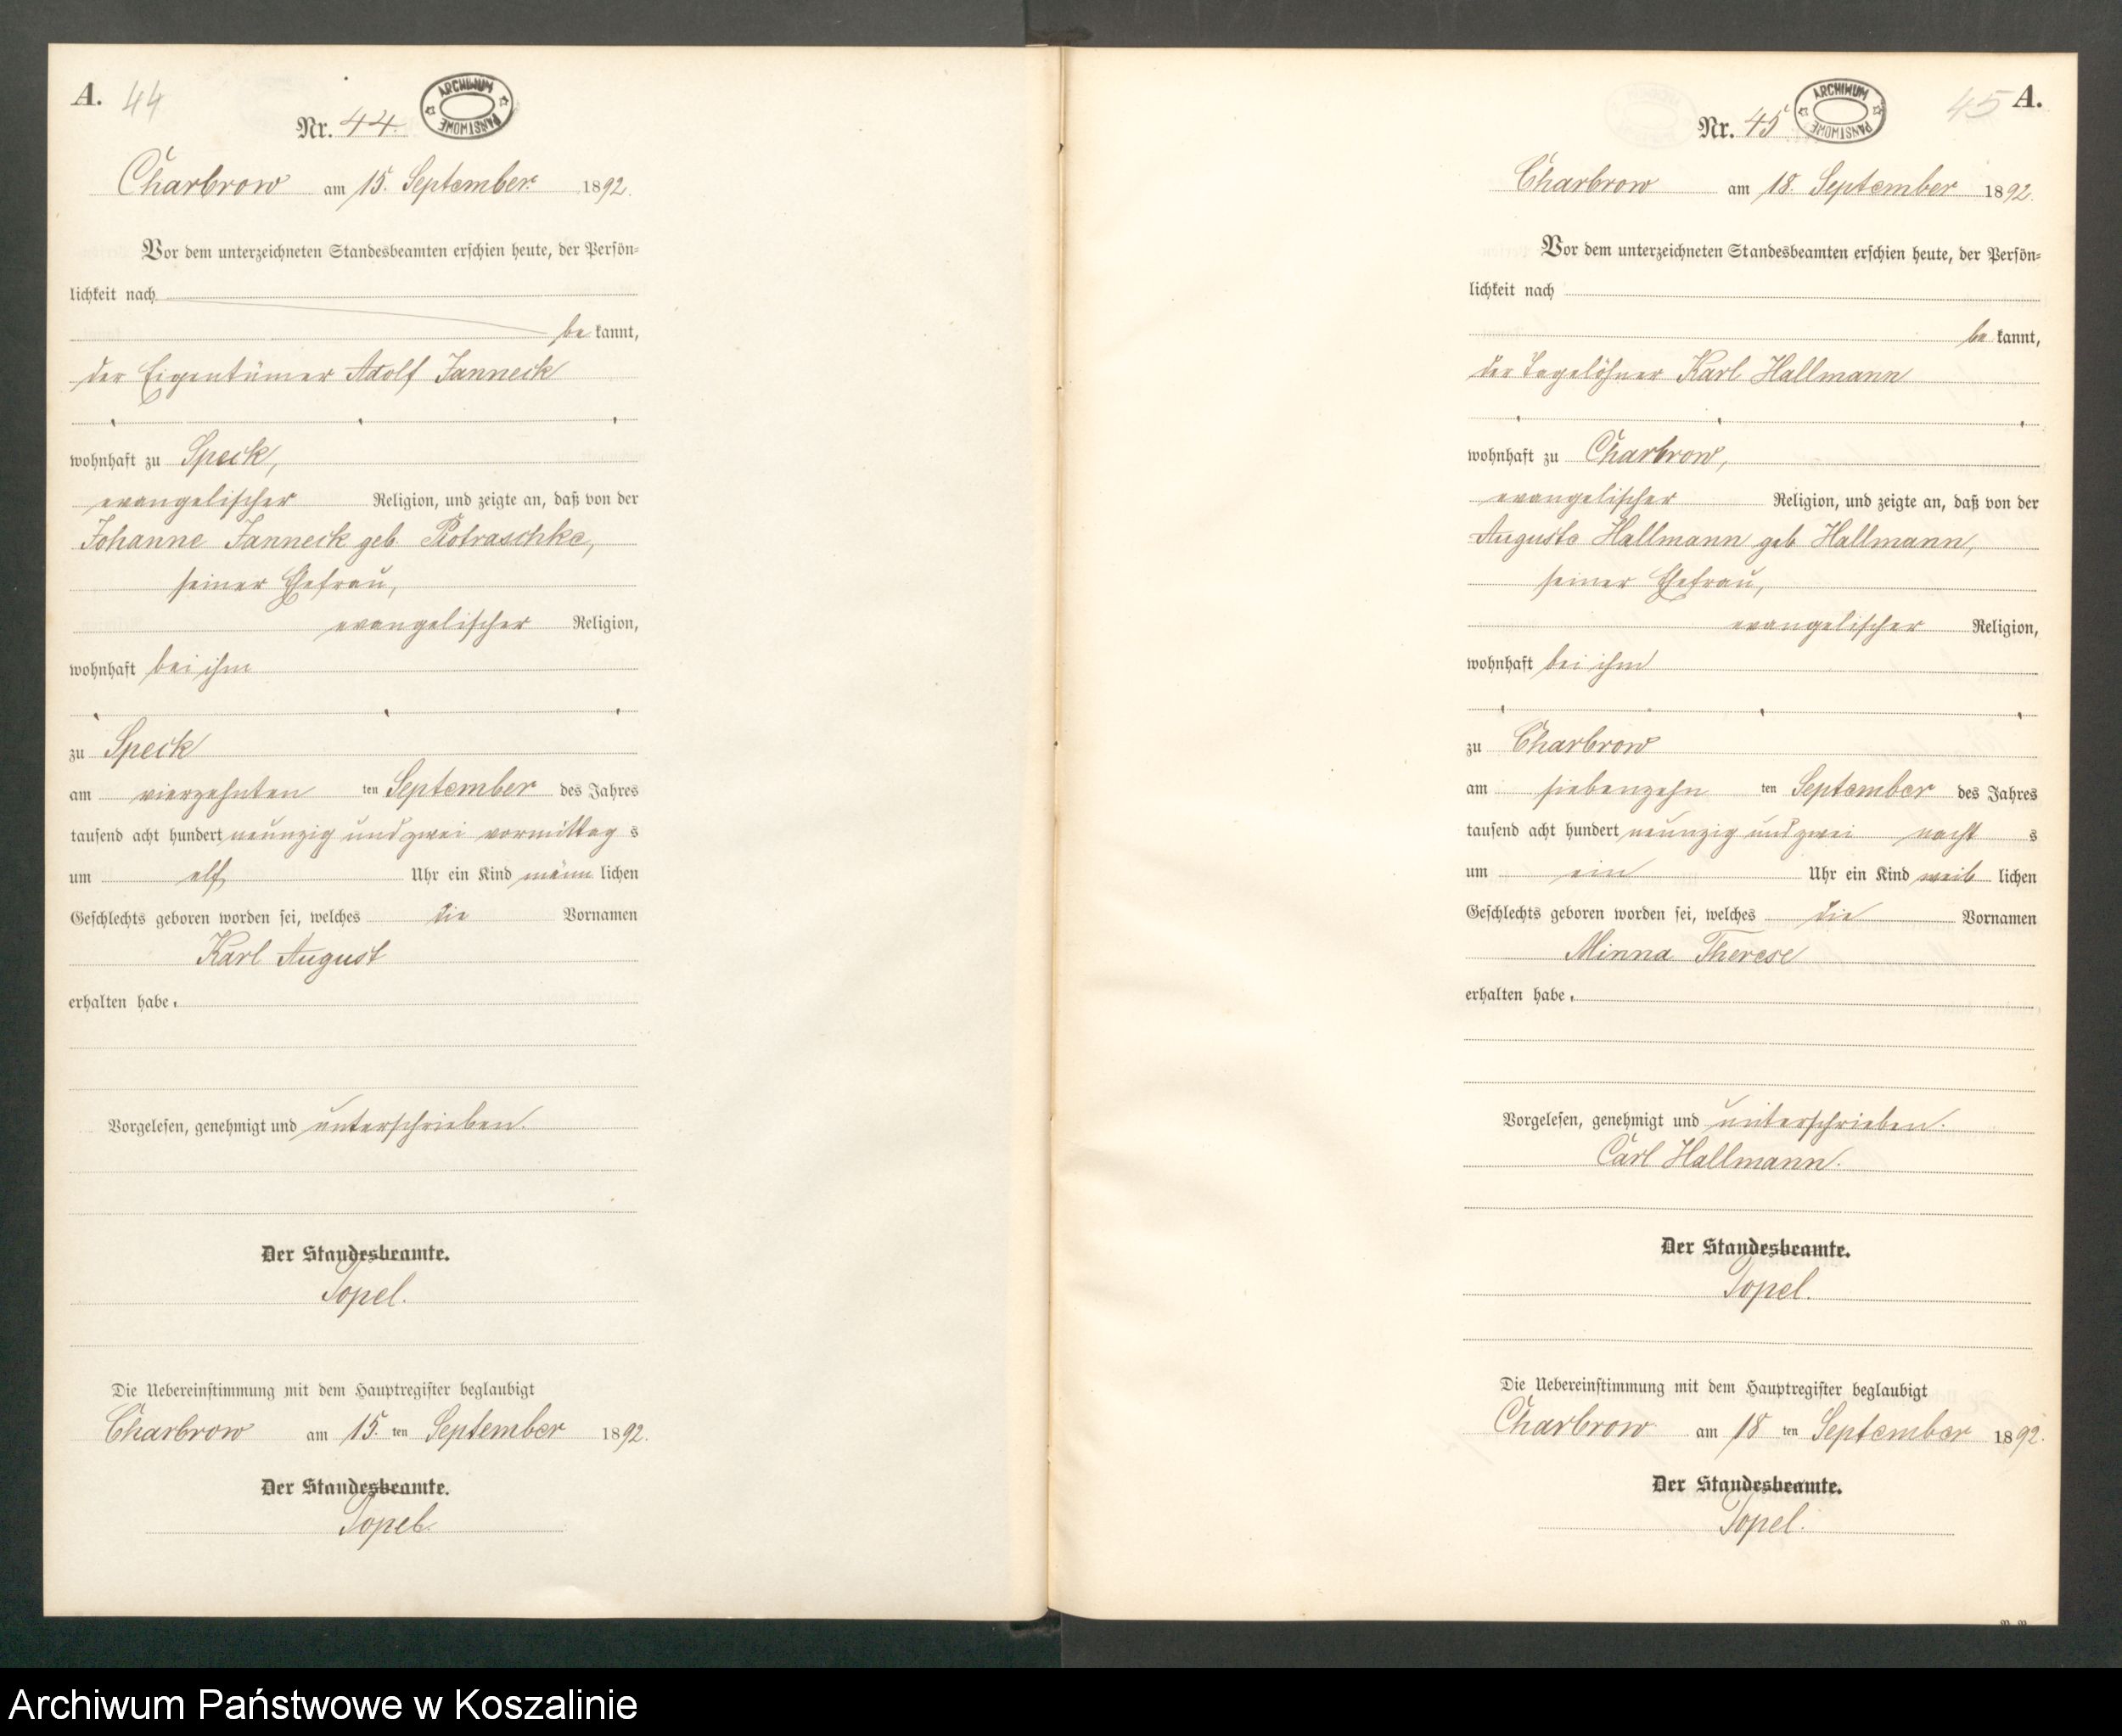 A. 44
ARCHIWUM PAŃSTWOWE
Nr. 44.
Charbrow am 15. September 1892.
Vor dem unterzeichneten Standesbeamten erschien heute, der Persön-
lichkeit nach
be kannt,
der Eigentümer Adolf Janneck
wohnhaft zu Speck,
evangelischer Religion, und zeigte an, daß von der
Johanne Janneck geb. Potraschke,
seiner Ehefrau,
evangelischer Religion,
wohnhaft bei ihm
zu Speck
am vierzehnten ten September des Jahres
tausend acht hundert neunzig und zwei vormittag s
um elf Uhr ein Kind männ lichen
Geschlechts geboren worden sei, welches die Vornamen
Karl August
erhalten habe.
Vorgelesen, genehmigt und unterschrieben.
Der Standesbeamte.
Topel.
Die Uebereinstimmung mit dem Hauptregister beglaubigt
Charbrow am 15. ten September 1892.
Der Standesbeamte.
Topel.
45 A.
ARCHIWUM PAŃSTWOWE
Nr. 45
Charbrow am 18. September 1892.
Vor dem unterzeichneten Standesbeamten erschien heute, der Persön-
lichkeit nach
be kannt,
der Tagelöhner Karl Hallmann
wohnhaft zu Charbrow,
evangelischer Religion, und zeigte an, daß von der
Auguste Hallmann geb Hallmann,
seiner Ehefrau,
evangelischer Religion,
wohnhaft bei ihm
zu Charbrow
am siebenzehn ten September des Jahres
tausend acht hundert neunzig und zwei nacht s
um ein Uhr ein Kind weib lichen
Geschlechts geboren worden sei, welches die Vornamen
Minna Therese
erhalten habe.
Vorgelesen, genehmigt und unterschrieben.
Carl Hallmann.
Der Standesbeamte.
Topel.
Die Uebereinstimmung mit dem Hauptregister beglaubigt
Charbrow am 18 ten September 1892.
Der Standesbeamte.
Topel.
Archiwum Państwowe w Koszalinie